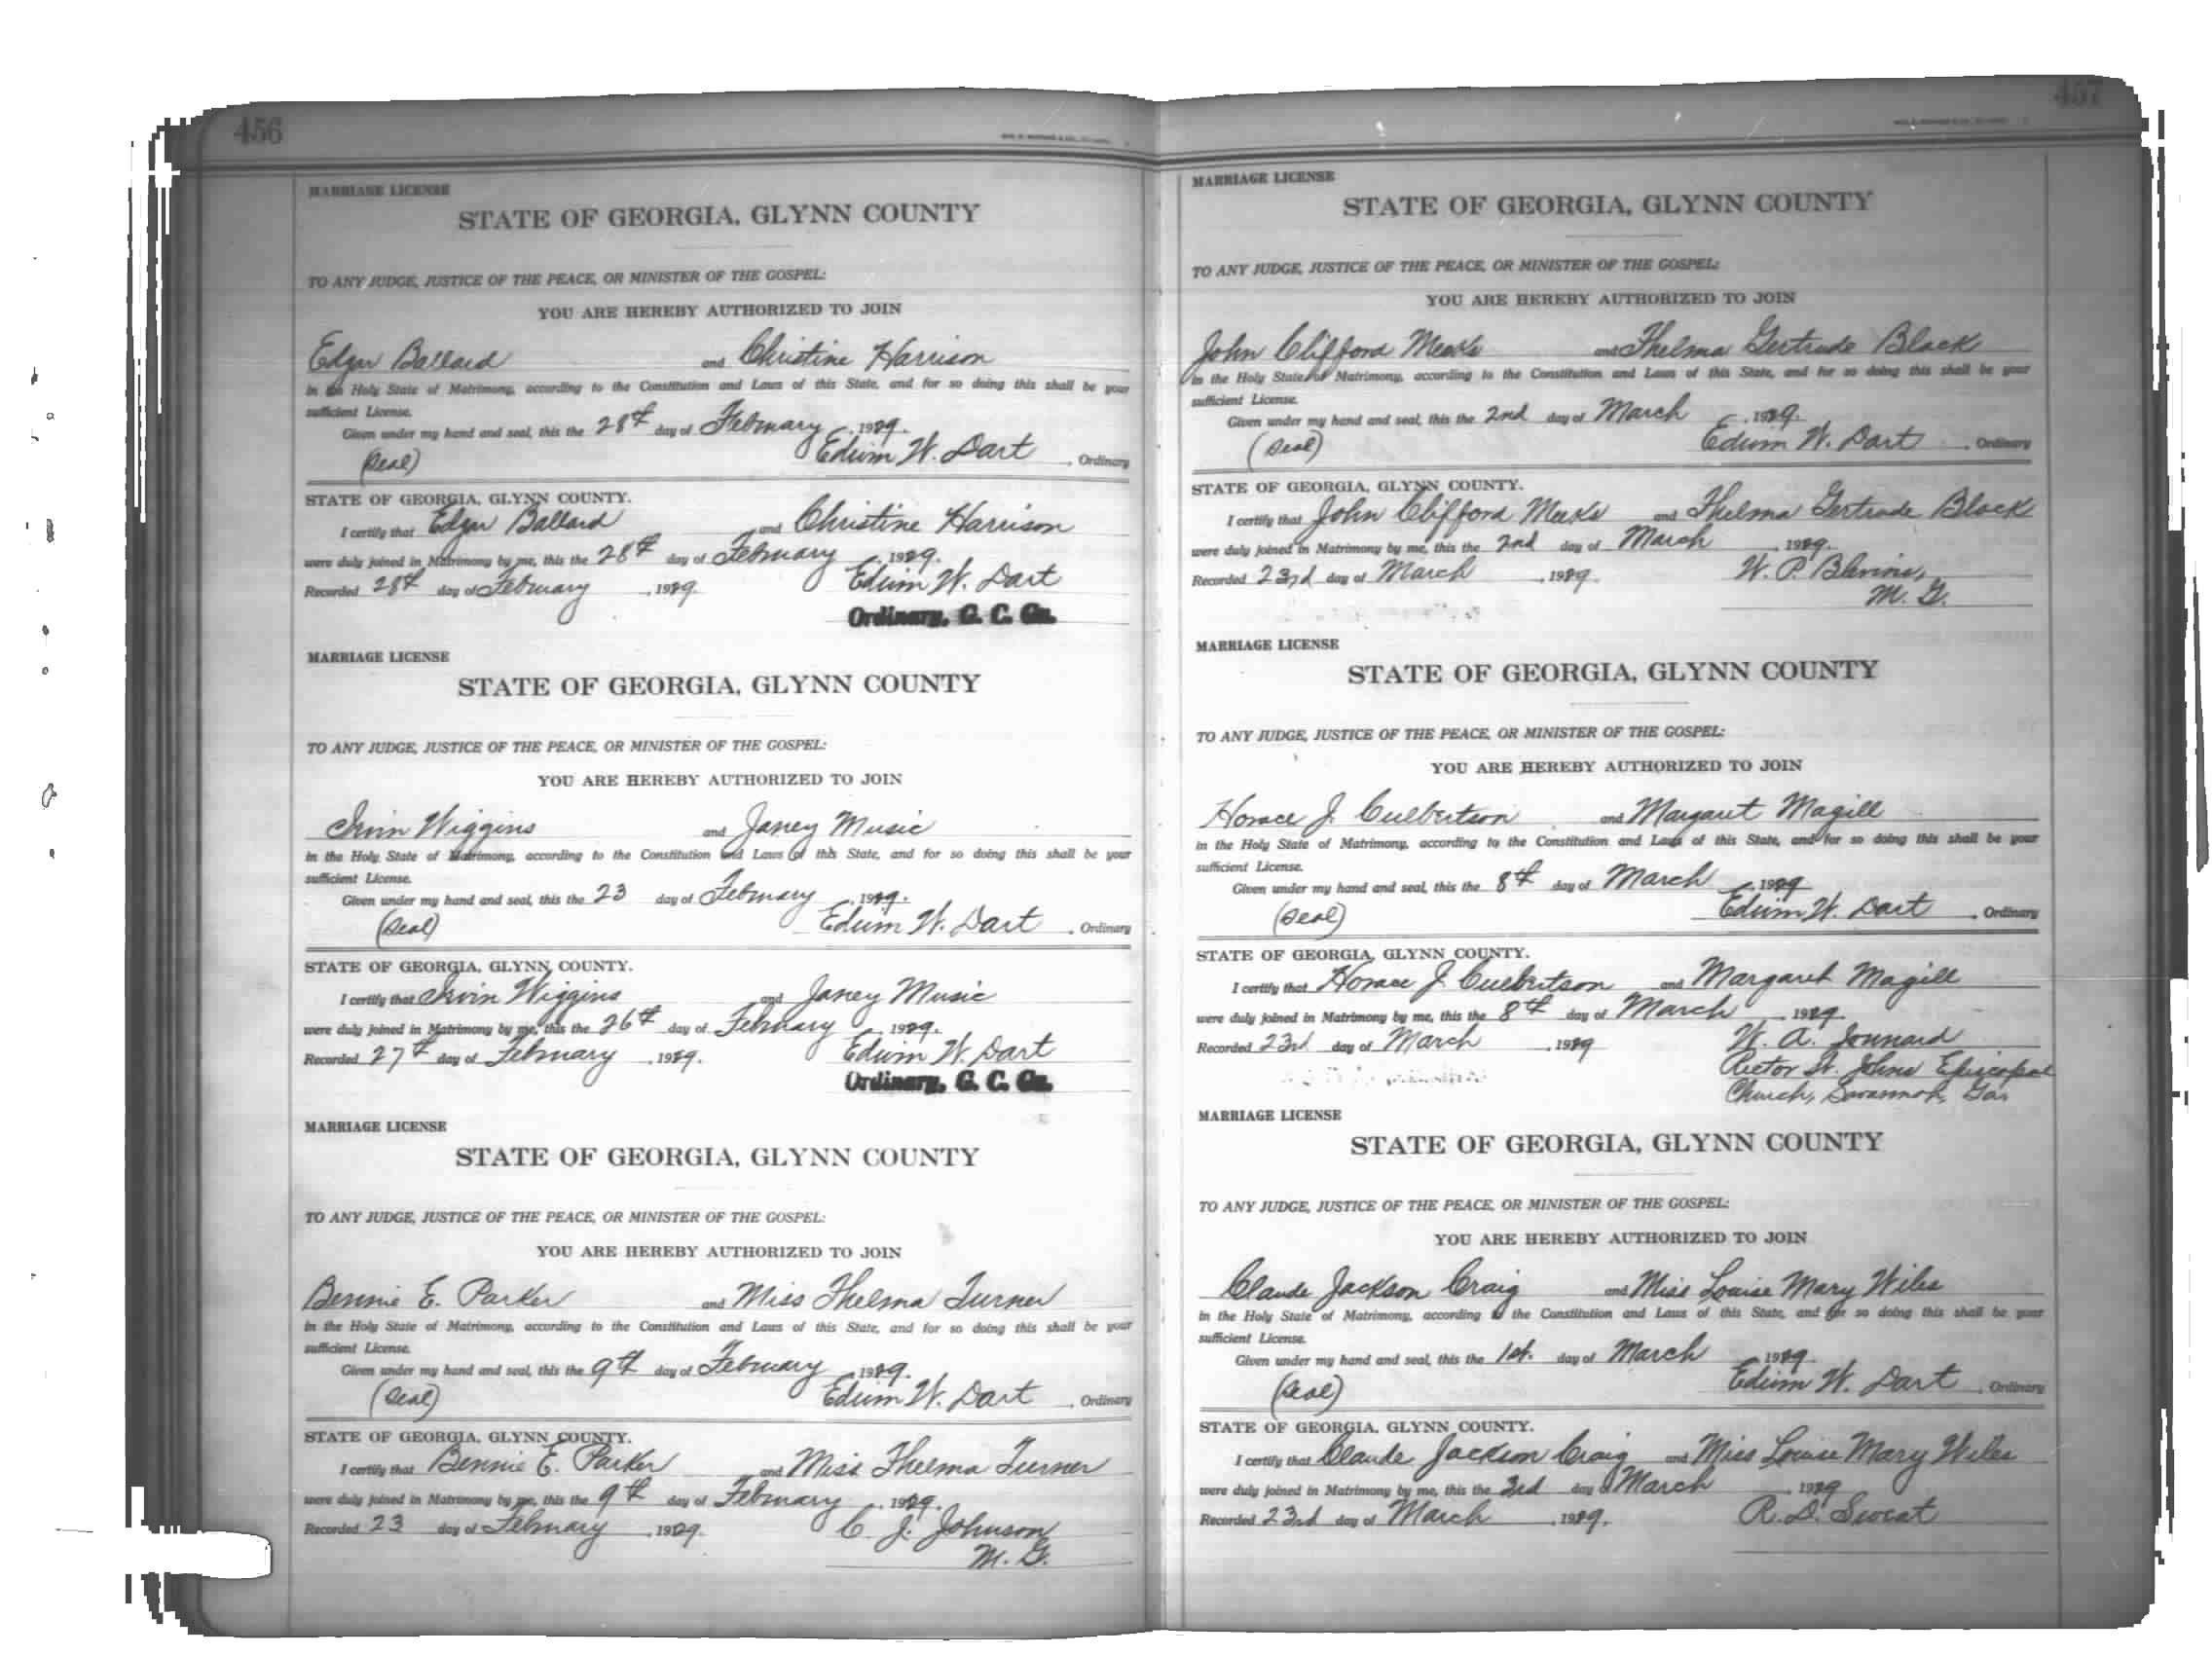 456
MARRIAGE LICENSE
STATE OF GEORGIA, GLYNN COUNTY
TO ANY JUDGE, JUSTICE OF THE PEACE, OR MINISTER OF THE GOSPEL:
YOU ARE HEREBY AUTHORIZED TO JOIN
Edgar Ballard and Christine Harrison
in the Holy State of Matrimony, according to the Constitution and Laws of this State, and for so doing this shall be your
sufficient License.
Given under my hand and seal, this the 28th day of February, 1929.
(Seal) Edwin W. Dart, Ordinary
STATE OF GEORGIA, GLYNN COUNTY.
I certify that Edgar Ballard and Christine Harrison
were duly joined in Matrimony by me, this the 28th day of February, 1929.
Recorded 28th day of February, 1929. Edwin W. Dart
Ordinary, G. C. Ga.
MARRIAGE LICENSE
STATE OF GEORGIA, GLYNN COUNTY
TO ANY JUDGE, JUSTICE OF THE PEACE, OR MINISTER OF THE GOSPEL:
YOU ARE HEREBY AUTHORIZED TO JOIN
Irvin Wiggins and Janey Music
in the Holy State of Matrimony, according to the Constitution and Laws of this State, and for so doing this shall be your
sufficient License.
Given under my hand and seal, this the 23 day of February, 1929.
(Seal) Edwin W. Dart, Ordinary
STATE OF GEORGIA, GLYNN COUNTY.
I certify that Irvin Wiggins and Janey Music
were duly joined in Matrimony by me, this the 26th day of February, 1929.
Recorded 27th day of February, 1929. Edwin W. Dart
Ordinary, G. C. Ga.
MARRIAGE LICENSE
STATE OF GEORGIA, GLYNN COUNTY
TO ANY JUDGE, JUSTICE OF THE PEACE, OR MINISTER OF THE GOSPEL:
YOU ARE HEREBY AUTHORIZED TO JOIN
Bennie E. Parker and Miss Thelma Turner
in the Holy State of Matrimony, according to the Constitution and Laws of this State, and for so doing this shall be your
sufficient License.
Given under my hand and seal, this the 9th day of February, 1929.
(Seal) Edwin W. Dart, Ordinary
STATE OF GEORGIA, GLYNN COUNTY.
I certify that Bennie E. Parker and Miss Thelma Turner
were duly joined in Matrimony by me, this the 9th day of February, 1929.
Recorded 23 day of February, 1929. C. J. Johnson
M. G.
457
MARRIAGE LICENSE
STATE OF GEORGIA, GLYNN COUNTY
TO ANY JUDGE, JUSTICE OF THE PEACE, OR MINISTER OF THE GOSPEL:
YOU ARE HEREBY AUTHORIZED TO JOIN
John Clifford Meeks and Thelma Gertrude Black
in the Holy State of Matrimony, according to the Constitution and Laws of this State, and for so doing this shall be your
sufficient License.
Given under my hand and seal, this the 2nd day of March, 1929.
(Seal) Edwin W. Dart, Ordinary
STATE OF GEORGIA, GLYNN COUNTY.
I certify that John Clifford Meeks and Thelma Gertrude Black
were duly joined in Matrimony by me, this the 2nd day of March, 1929.
Recorded 23rd day of March, 1929. W. P. Blevins,
M. G.
MARRIAGE LICENSE
STATE OF GEORGIA, GLYNN COUNTY
TO ANY JUDGE, JUSTICE OF THE PEACE, OR MINISTER OF THE GOSPEL:
YOU ARE HEREBY AUTHORIZED TO JOIN
Horace J. Culbertson and Margaret Magill
in the Holy State of Matrimony, according to the Constitution and Laws of this State, and for so doing this shall be your
sufficient License.
Given under my hand and seal, this the 8th day of March, 1929
(Seal) Edwin W. Dart, Ordinary
STATE OF GEORGIA, GLYNN COUNTY.
I certify that Horace J. Culbertson and Margaret Magill
were duly joined in Matrimony by me, this the 8th day of March, 1929.
Recorded 23rd day of March, 1929 W. A. Jonnard
Rector St. Johns Episcopal
Church, Savannah, Ga.
MARRIAGE LICENSE
STATE OF GEORGIA, GLYNN COUNTY
TO ANY JUDGE, JUSTICE OF THE PEACE, OR MINISTER OF THE GOSPEL:
YOU ARE HEREBY AUTHORIZED TO JOIN
Claude Jackson Craig and Miss Louise Mary Wiles
in the Holy State of Matrimony, according to the Constitution and Laws of this State, and for so doing this shall be your
sufficient License.
Given under my hand and seal, this the 1st. day of March, 1929.
(Seal) Edwin W. Dart, Ordinary
STATE OF GEORGIA, GLYNN COUNTY.
I certify that Claude Jackson Craig and Miss Louise Mary Wiles
were duly joined in Matrimony by me, this the 3rd day of March, 1929
Recorded 23rd day of March, 1929. R. D. Sweat